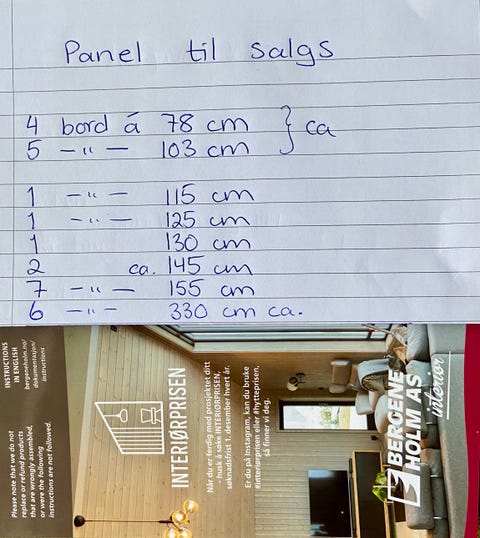 Panel til salgs
4 bord á 78 cm } ca
5 –"– 103 cm
1 –"– 115 cm
1 –"– 125 cm
1 130 cm
2 ca. 145 cm
7 –"– 155 cm
6 –"– 330 cm ca.
INSTRUCTIONS
IN ENGLISH
bergeneholm.no/
dokumentasjon/
instructions
Please note that we do not
replace or refund products
that are wrongly assembled,
or were the following
instructions are not followed.
INTERIØRPRISEN
Når du er ferdig med prosjektet ditt
- husk å søke INTERIØRPRISEN,
søknadsfrist 1. desember hvert år.
Er du på Instagram, kan du bruke
#interiørprisen eller #hytteprisen,
så finner vi deg.
BERGENE
HOLM AS
interiør